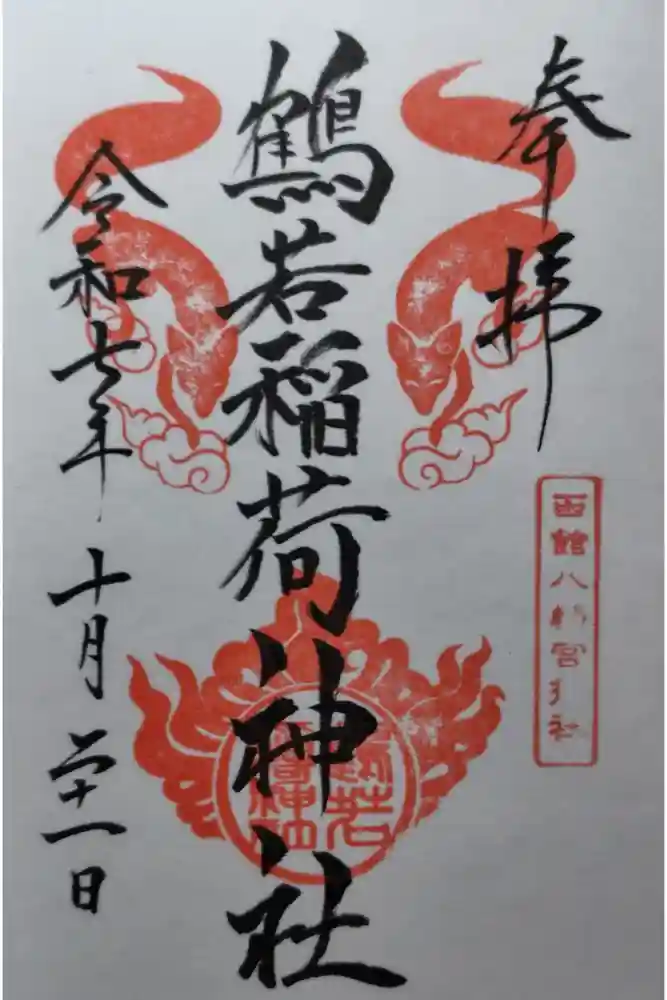 奉拝
函館八幡宮末社
鶴若稲荷神社
令和七年 十月 二十一日